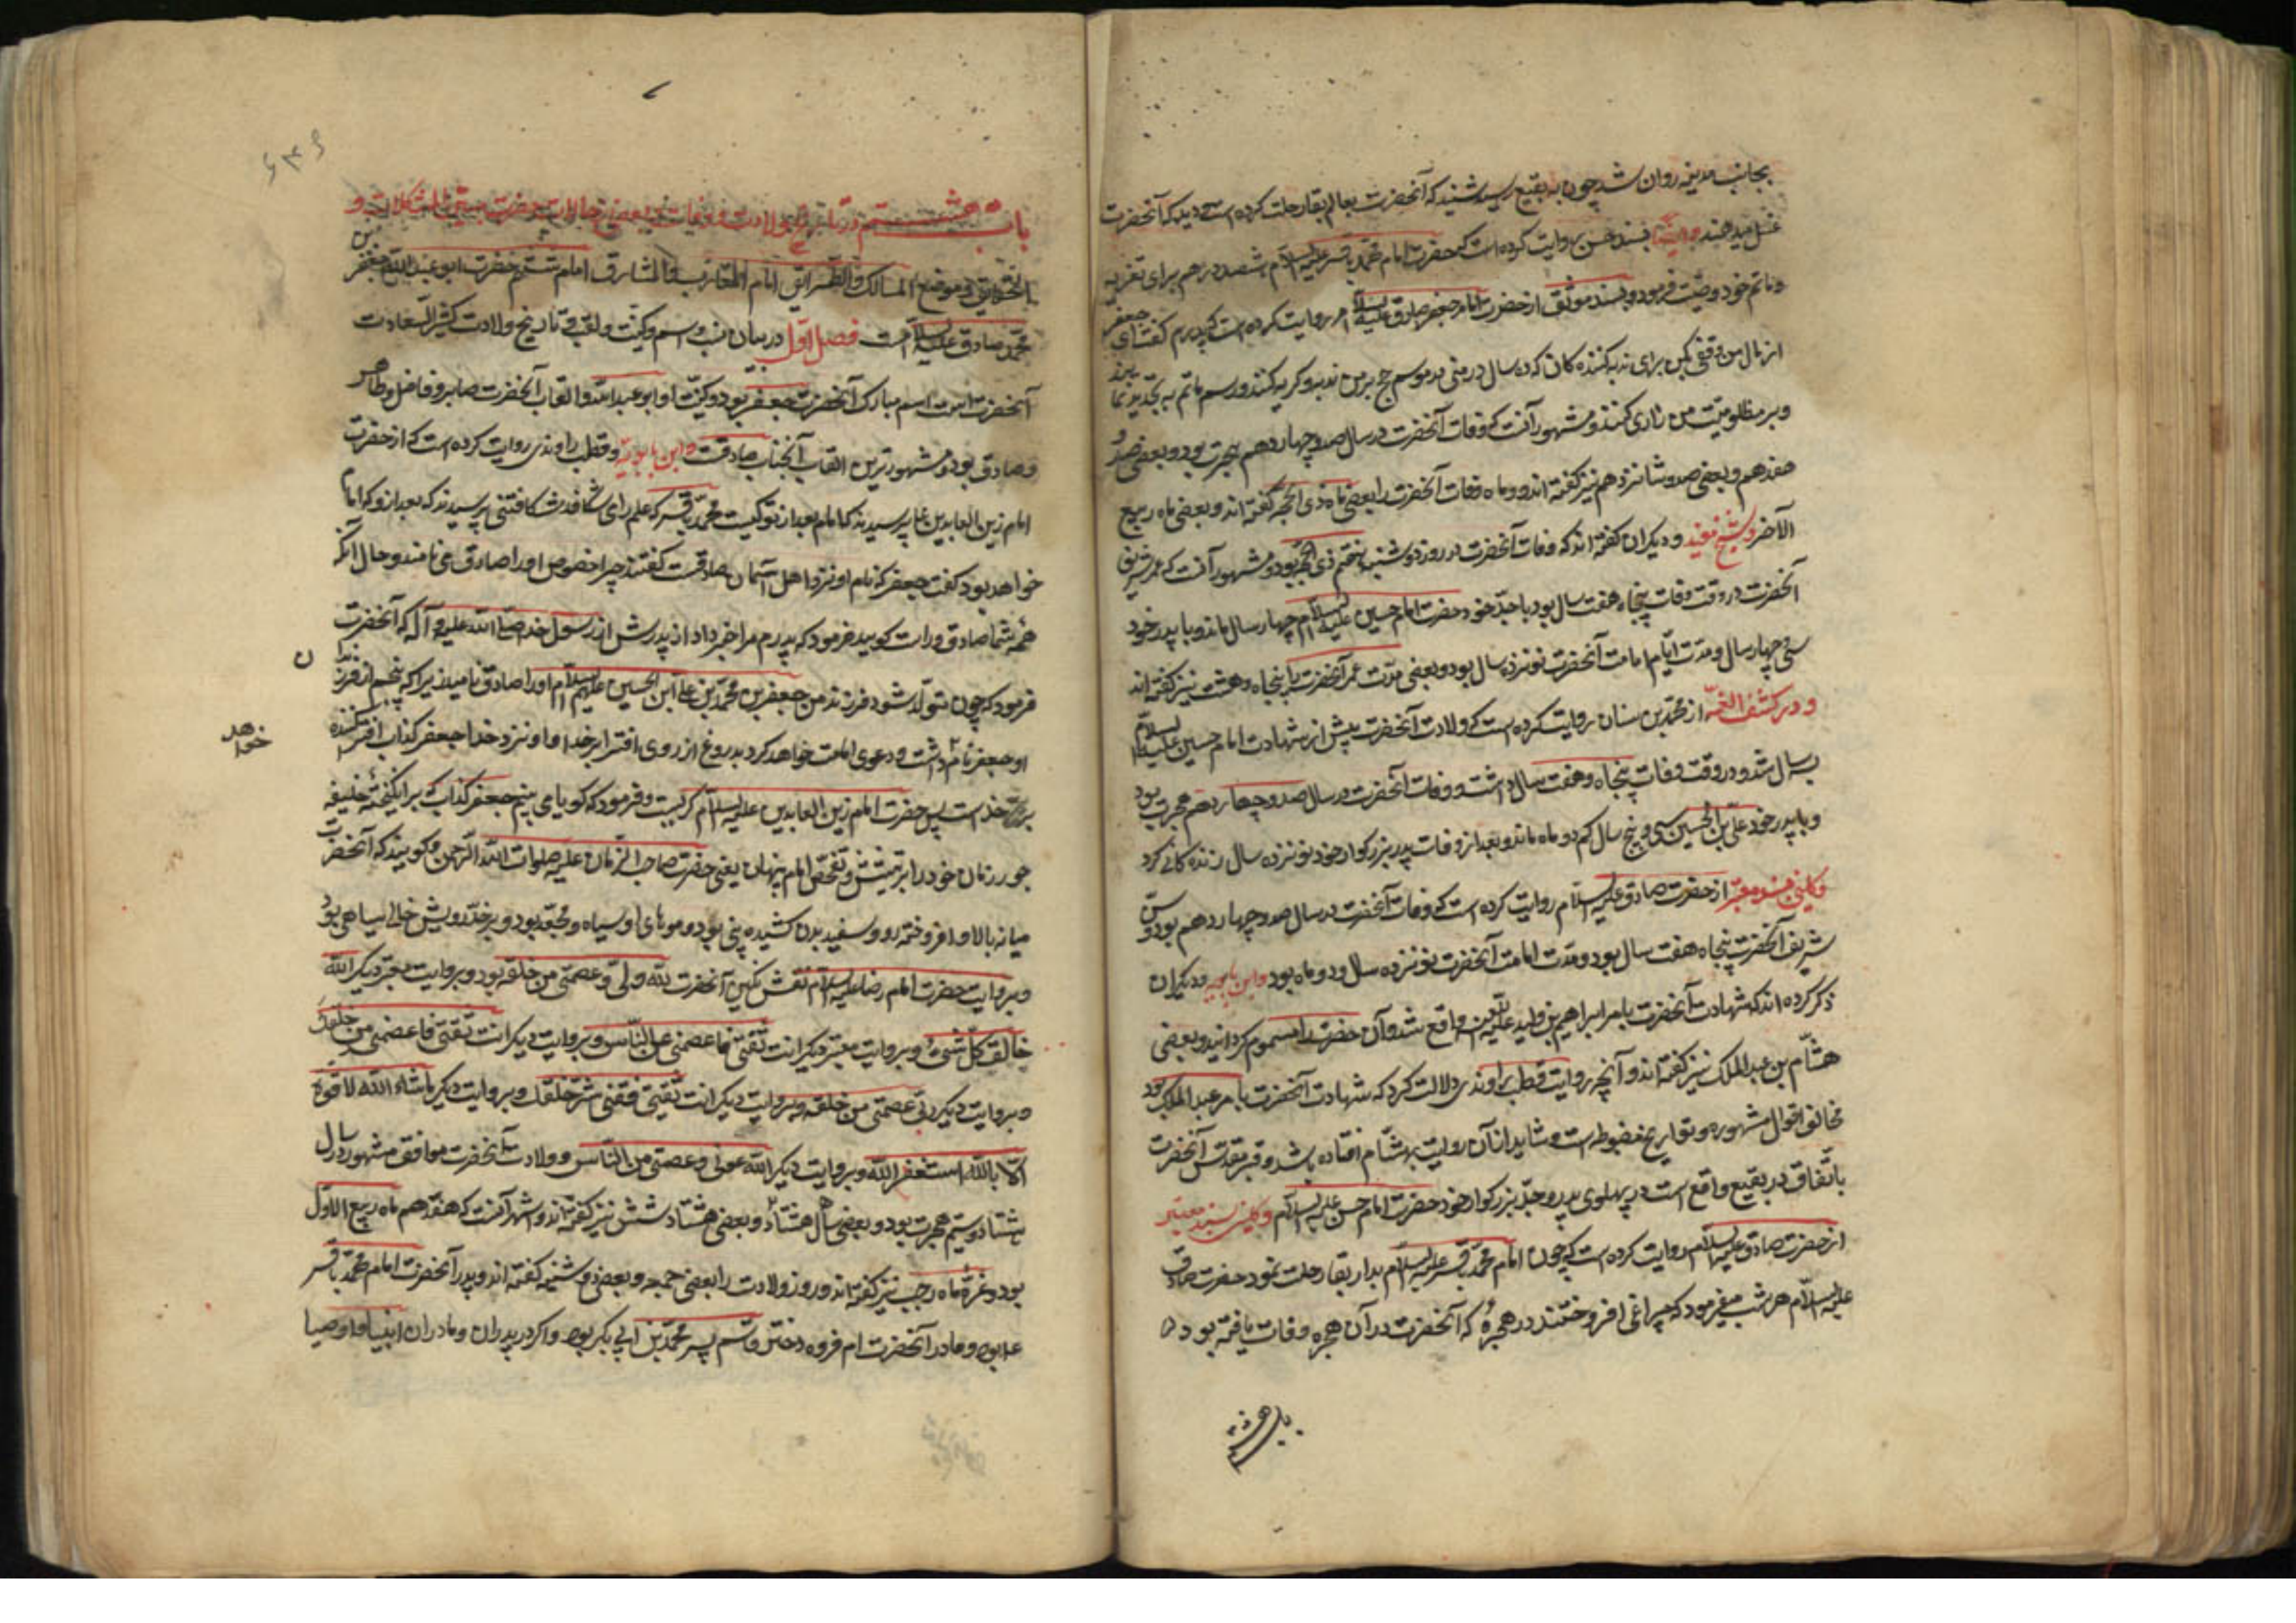 بجانب مدینه روان شد چون به بقیع رسید شنید که آنحضرت بعالم بقا رحلت کرده است دید که آنحضرت
غسل میدهند وایضا بسند حسن روایت کرده است که حضرت امام محمد باقر علیه السلام هشصد درهم برای تعزیه
و ماتم خود وصیت فرمود و بسند موثق از حضرت امام جعفر صادق علیه السلام روایت کرده است که پدرم گفت ای جعفر
از مال من وقفی بکن برای ندبه کننده کان که ده سال در منی در موسم حج بر من ندبه و گریه کنند و رسم ماتم به تجدید نمایند
و بر مظلومیت من زاری کنند و مشهور آنست که وفات آنحضرت در سال صد و چهاردهم هجرت بود و بعضی صد و
هفدهم و بعضی صد و شانزدهم نیز گفته اند و ماه وفات آنحضرت را بعضی ماه ذی الحجه گفته اند و بعضی ماه ربیع
الآخر و شیخ مفید و دیگران گفته اند که وفات آنحضرت در روز دوشنبه هفتم ذی الحجه بود و مشهور آنست که عمر شریف
آنحضرت در وقت وفات پنجاه هفت سال بود با جد خود حضرت امام حسین علیه السلام چهار سال ماند و با پدر خود
سی و چهار سال و مدت ایام امامت آنحضرت نوزده سال بود و بعضی مدت عمر آنحضرت را پنجاه و هشت نیز گفته اند
و در کشف الغمه از محمد بن سنان روایت کرده است که ولادت آنحضرت پیش از شهادت امام حسین علیه السلام
بسه سال شد و در وقت وفات پنجاه و هفت سال داشت و وفات آنحضرت در سال صد و چهاردهم هجرت بود
و با پدر خود علی بن الحسین سی و پنج سال کم دو ماه ماند و بعد از وفات پدر بزرکوار خود نوزده سال زنده کانی کرد
و کلینی بسند معتبر از حضرت صادق علیه السلام روایت کرده است که وفات آنحضرت در سال صد و چهاردهم بود و سن
شریف آنحضرت پنجاه هفت سال بود و مدت امامت آنحضرت نوزده سال و دو ماه بود و ابن بابویه و دیگران
ذکر کرده اند که شهادت آنحضرت بامر ابراهیم بن ولید علیه اللعنه واقع شد و آن حضرت را مسموم کردانید و بعضی
هشام بن عبد الملک نیز گفته اند و آنچه روایت قطب راوندی دلالت کرد که شهادت آنحضرت بامر عبد الملک بود
مخالف اقوال مشهوره و تواریخ مضبوطه است و شاید از آن روایت هشام افتاده باشد و قبر مقدس آنحضرت
باتفاق در بقیع واقع است در پهلوی پدر و جد بزرکوار خود حضرت امام حسن علیه السلام و کلینی بسند معتبر
از حضرت صادق علیه السلام روایت کرده است که چون امام محمد باقر علیه السلام بدار بقا رحلت نمود حضرت صادق
علیه السلام هر شب میفرمود که چراغی افروختند در حجره که آنحضرت در آن حجره وفات یافته بود
باب هشتم
باب هشتم در تاریخ ولادت و وفات و بعضی حالات حضرت مبین المشکلات و
الحقایق و موضح المسالک و الطرایق امام المغارب و المشارق امام ششم حضرت ابو عبد الله جعفر بن
محمد صادق علیه السلام است فصل اول در بیان نسب و اسم و کنیت و لقب و تاریخ ولادت کثیر السعادت
آنحضرت است اسم مبارک آنحضرت جعفر بود و کنیت او ابو عبد الله و القاب آنحضرت صابر و فاضل و طاهر
و صادق بود و مشهورترین القاب آنجناب صادقست و ابن بابویه و قطب راوندی روایت کرده است که از حضرت
امام زین العابدین پرسیدند که امام بعد از تو کیست محمد باقر که علم را می شکافد شکافتنی پرسیدند که بعد از و که امام
خواهد بود گفت جعفر که نام او نزد اهل آسمان صادقست گفتند چرا بخصوص او را صادق می نامند و حال آنکه
همه شما صادق و راست کویید فرمود که پدرم مرا خبر داد از پدرش از رسول خدا صلی الله علیه و آله که آنحضرت
فرمود که چون متولد شود فرزند من جعفر بن محمد بن علی ابن الحسین علیهم السلام او را صادق نامید زیرا که پنجم از فرزندان
او جعفر نام خواهد داشت و دعوی امامت خواهد کرد بدروغ از روی افترا بر خدا و او نزد خدا جعفر کذاب افترا کننده
بر خداست پس حضرت امام زین العابدین علیه السلام گریست و فرمود که گویا می بینم جعفر کذاب که برانگیخته خلیفه
جور زمان خود را بر تفتیش و تفحص امام پنهان یعنی حضرت صاحب الزمان علیه صلوات الله الرحمن و کویند که آنحضرت
میانه بالا و افروخته رو و سفید بدن کشیده بینی بود و موهای او سیاه و مجعد بود و بر خد رویش خال سیاهی بود
و بروایت حضرت امام رضا علیه السلام نقش نگین آنحضرت الله ولی و عصمتی من خلقه بود و بروایت معتبر دیگر الله
خالق کل شیء و بروایت معتبر دیکر انت ثقتی فاعصمنی من الناس و بروایت دیکر انت ثقتی فاعصمنی من خلقک
و بروایت دیکر ربی عصمنی من خلقه و بروایت دیکر انت ثقتی فقنی شر خلقک و بروایت دیکر ماشاء الله لا قوة
الا بالله استغفر الله و بروایت دیکر الله عونی و عصمتی من الناس و ولادت آنحضرت موافق مشهور در سال
هشتاد و سیم هجرت بود و بعضی سال هشتاد و بعضی هشتاد شش نیز گفته اند و اشهر آنست که هفدهم ماه ربیع الاول
بود و غره ماه رجب نیز گفته اند و روز ولادت را بعضی جمعه و بعضی دوشنبه گفته اند و پدر آنحضرت امام محمد باقر
علیه بود و مادر آنحضرت ام فروه دختر قاسم پسر محمد بن ابی بکر بود و اکر در پدران و مادران انبیا و اوصیا
خواهد